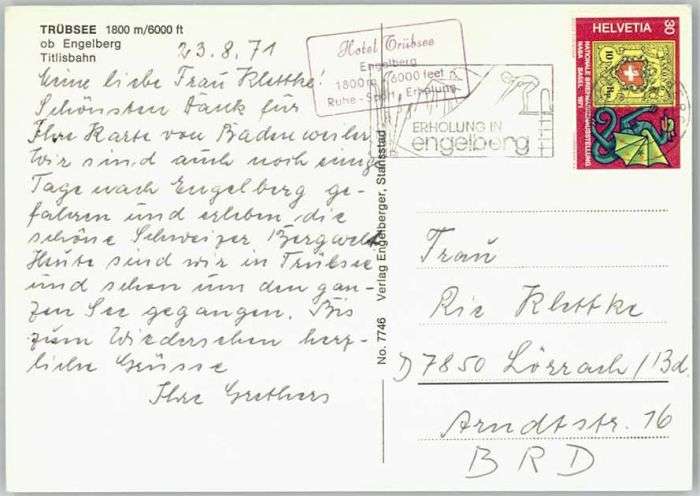 TRÜBSEE 1800 m/6000 ft
ob Engelberg
Titlisbahn
23.8.71
Meine liebe Frau Klettke!
Schönsten Dank für
Ihre Karte von Badenweiler.
Wir sind auch noch einige
Tage nach Engelberg ge-
fahren und erleben die
schöne Schweizer Bergwelt
Heute sind wir in Trübsee
und schon um den gan-
zen See gegangen. Bis
zum Wiedersehen herz-
liche Grüsse
Ihre Grethers
Hotel Trübsee
Engelberg
1800 m 6000 feet
Ruhe - Sport - Erholung
ERHOLUNG IN
engelberg
HELVETIA 30
NATIONALE BRIEFMARKENAUSSTELLUNG
NABA BASEL 1971
No. 7746 Verlag Engelberger, Stansstad
Frau
Ria Klettke
D 7850 Lörrach/Bd.
Arndtstr. 16
BRD